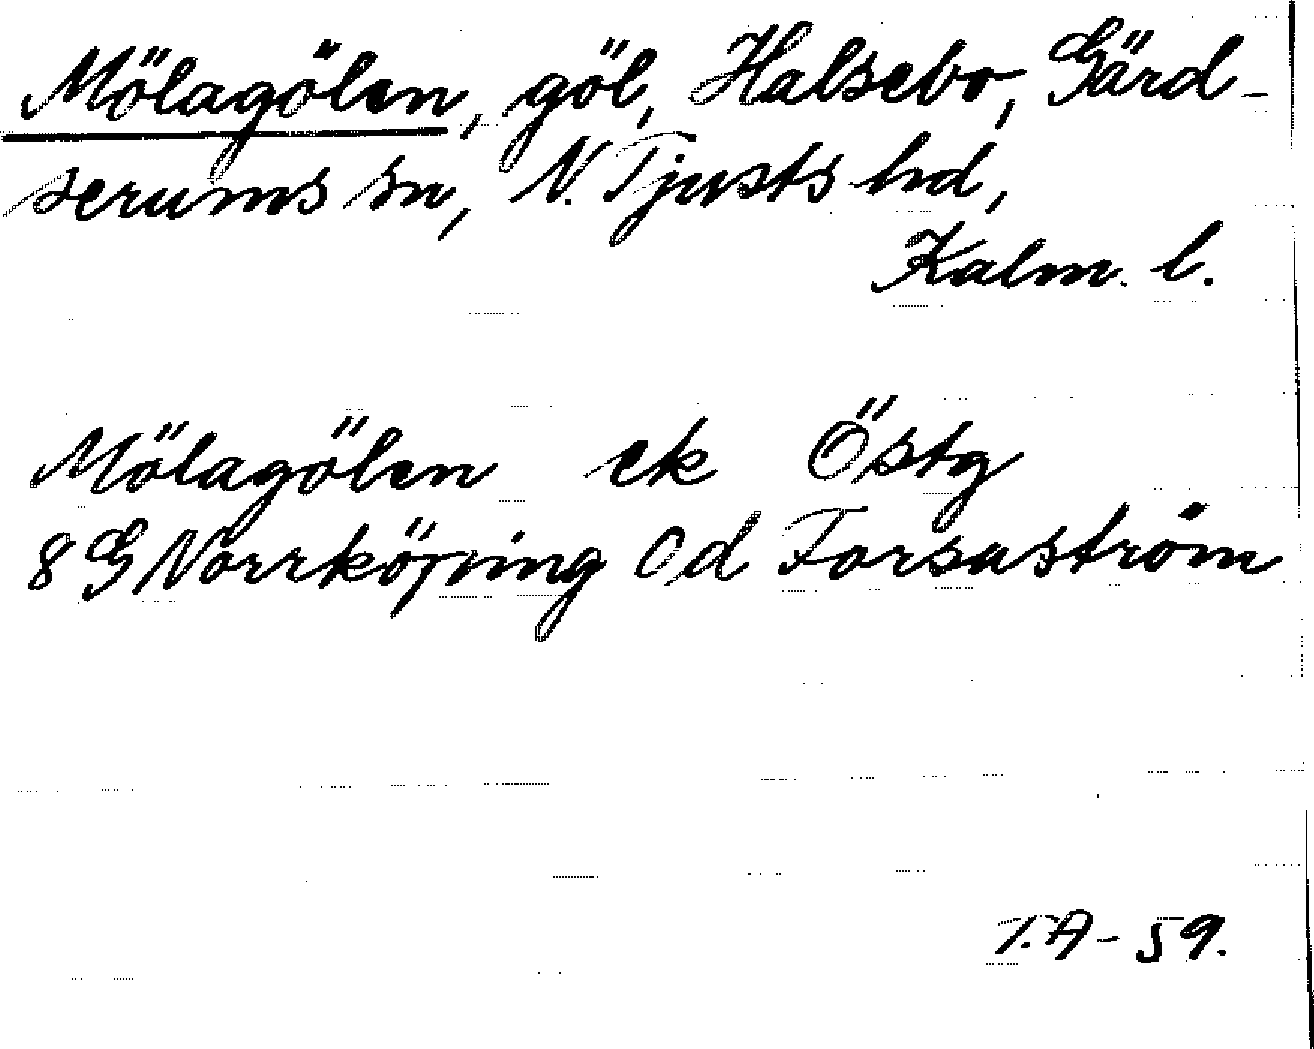 Mölagölen, göl, Halsebo, Gärd-
serums sn, N. Tjusts hd,
Kalm. l.
Mölagölen ek Östg
8 G Norrköping Od Forsaström
T.A-59.